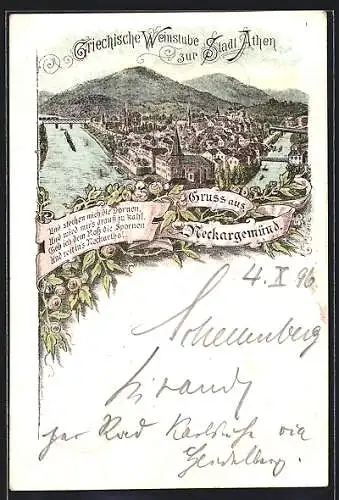 Griechische Weinstube
zur Stadt Athen
Und stechen mich die Dornen,
Und wird mir's drauß zu kahl,
Geb ich dem Roß die Spornen
Und reit ins Neckarthal.
Gruss aus
Neckargemünd.
4. X 96
Schellenberg
per Rad Karlsruhe via
Heidelberg.